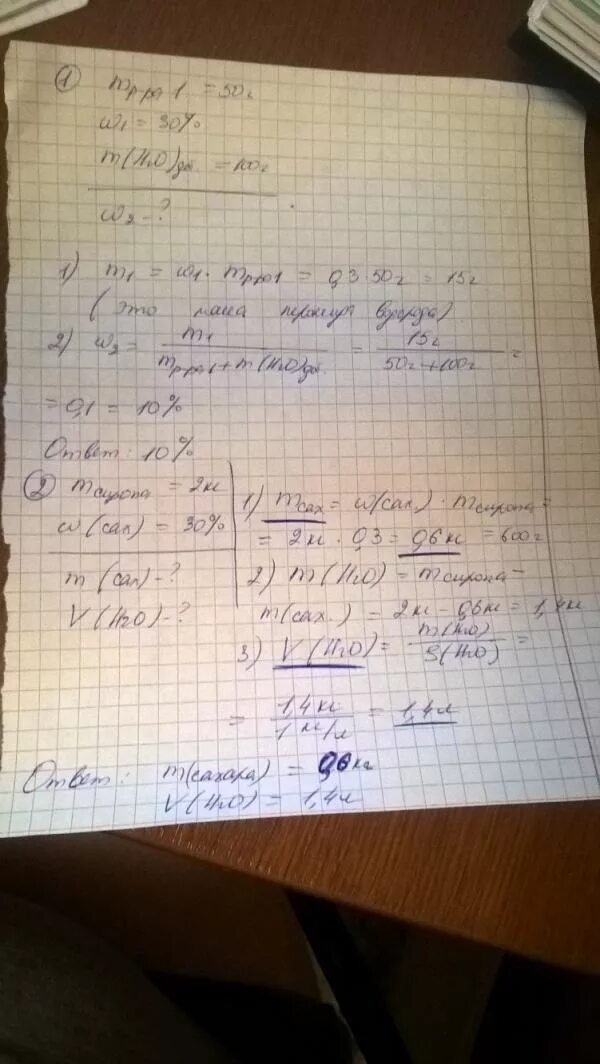 ① mр-ра 1 = 50г
w1 = 30%
m(H2O)доб. = 100г
w2 - ?
1) m1 = w1 · mр-ра1 = 0,3 · 50г = 15г
(это масса пероксида водорода)
2) w2 = m1 / mр-ра1 + m(H2O)доб. = 15г / 50г + 100г =
= 0,1 = 10%
Ответ: 10%
② mсиропа = 2кг
w(сах) = 30%
m(сах) - ?
V(H2O) - ?
1) mсах = w(сах.) · mсиропа =
= 2кг · 0,3 = 0,6кг = 600г
2) m(H2O) = mсиропа -
m(сах.) = 2кг - 0,6кг = 1,4кг
3) V(H2O) = m(H2O) / ρ(H2O) =
= 1,4кг / 1 кг/л = 1,4л
Ответ: m(сахара) = 0,6кг
V(H2O) = 1,4л